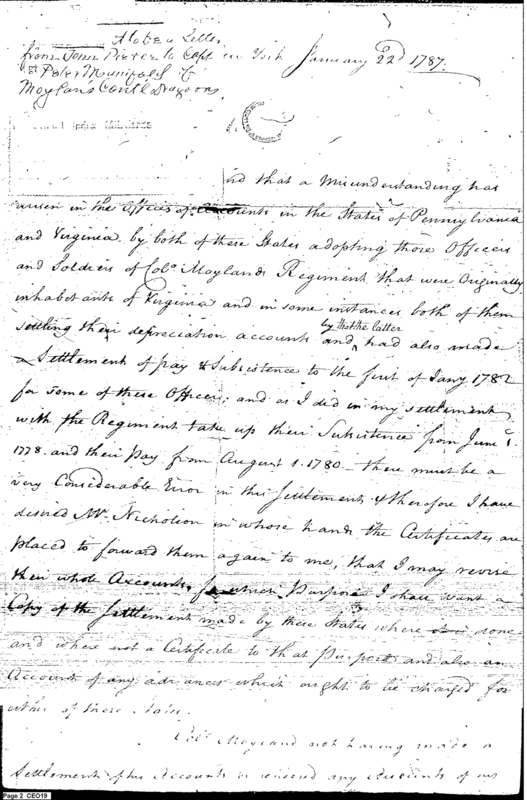 from John Pierce to Capt in York January 22d 1787.
Peter Manifold of
Moylans Contl Dragoons
nd that a Misunderstanding has
arisen in the Offices of Accounts in the States of Pennsylvania
and Virginia by both of these States adopting those Officers
and Soldiers of Colo. Moylands Regiment that were Originally
inhabitants of Virginia and in some instances both of them
by that the latter
settling their depreciation accounts and had also made
a Settlement of pay & Subsistence to the first of Jany 1782
for some of these Officers; and as I did in my settlement
with the Regiment take up their Subsistence from June 1.
1778. and their Pay from August 1. 1780 - there must be a
very Considerable Error in this Settlement & therefore I have
desired Mr. Nicholson in whose hands the Certificates are
placed to forward them again to me, that I may revise
their whole Accounts, for which Purpose I shall want a
Copy of the Settlement made by these States where done
and where not a Certificate to that Purpose and also an
Account of any advances which ought to be charged for
either of these States.
Colo. Moyland not having made a
Settlement of his Accounts or rendered any Accounts of
Page 2 CEO19